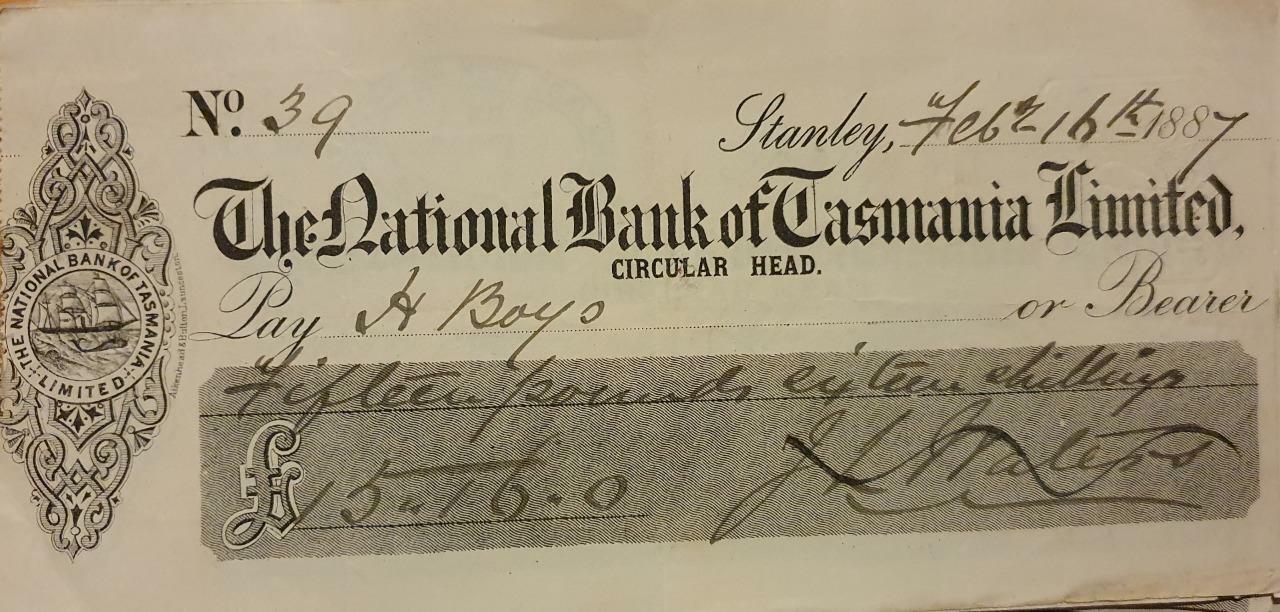 No. 39
Stanley, Feby 16th 1887
The National Bank of Tasmania Limited,
CIRCULAR HEAD.
Pay H Boys or Bearer
Fifteen pounds sixteen shillings
£15-16-0
J L Waters
THE NATIONAL BANK OF TASMANIA LIMITED
Aikenhead & Button, Launceston.